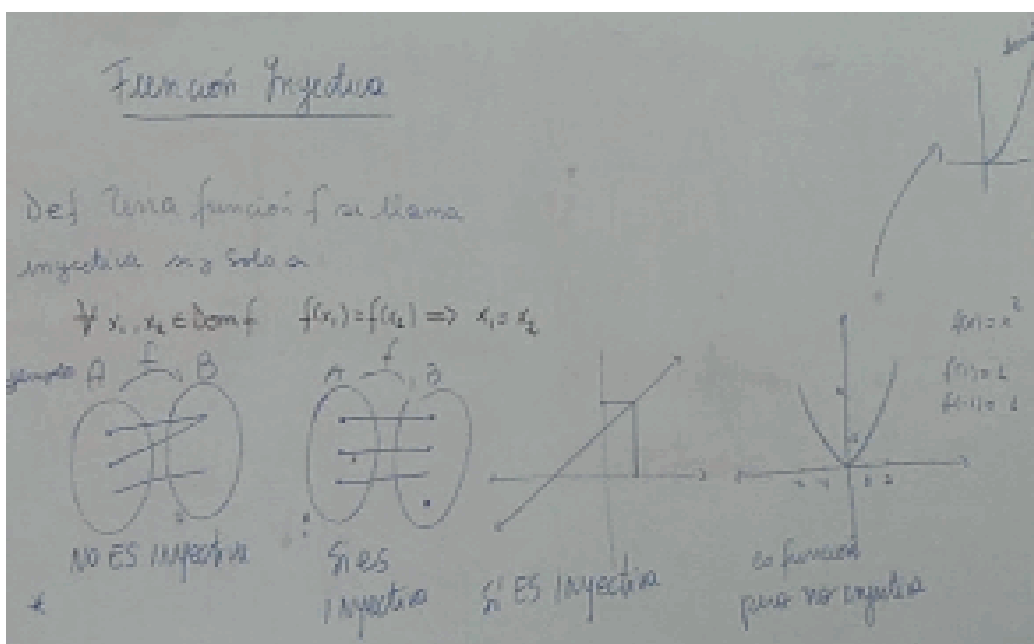 Función Inyectiva
Def Una función f se llama
inyectiva si y solo si
∀ x₁, x₂ ∈ Dom f f(x₁) = f(x₂) => x₁ = x₂
A f B
A f B
f(x) = x²
f(1) = 1
f(-1) = 1
NO ES Inyectiva
Si es
Inyectiva
Sí ES Inyectiva
es función
pero no inyectiva